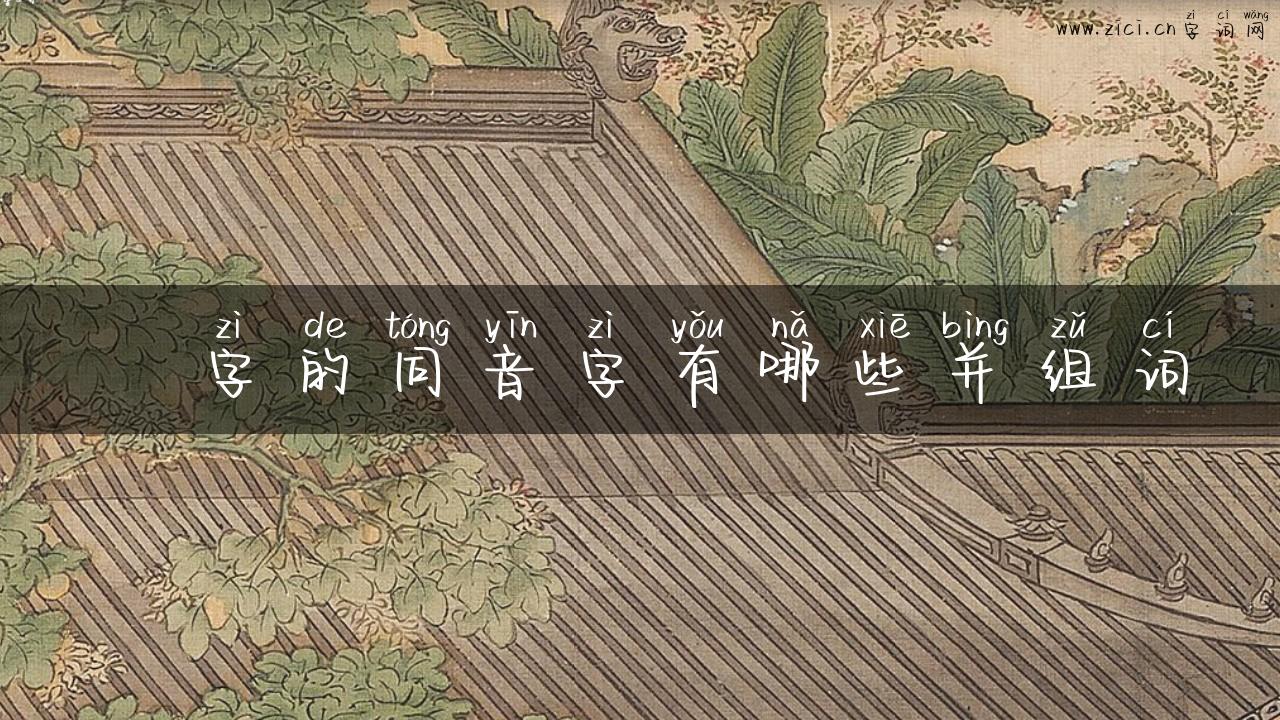 zì cí wǎng
www.zici.cn 字词网
zì de tóng yīn zì yǒu nǎ xiē bìng zǔ cí
字的同音字有哪些并组词